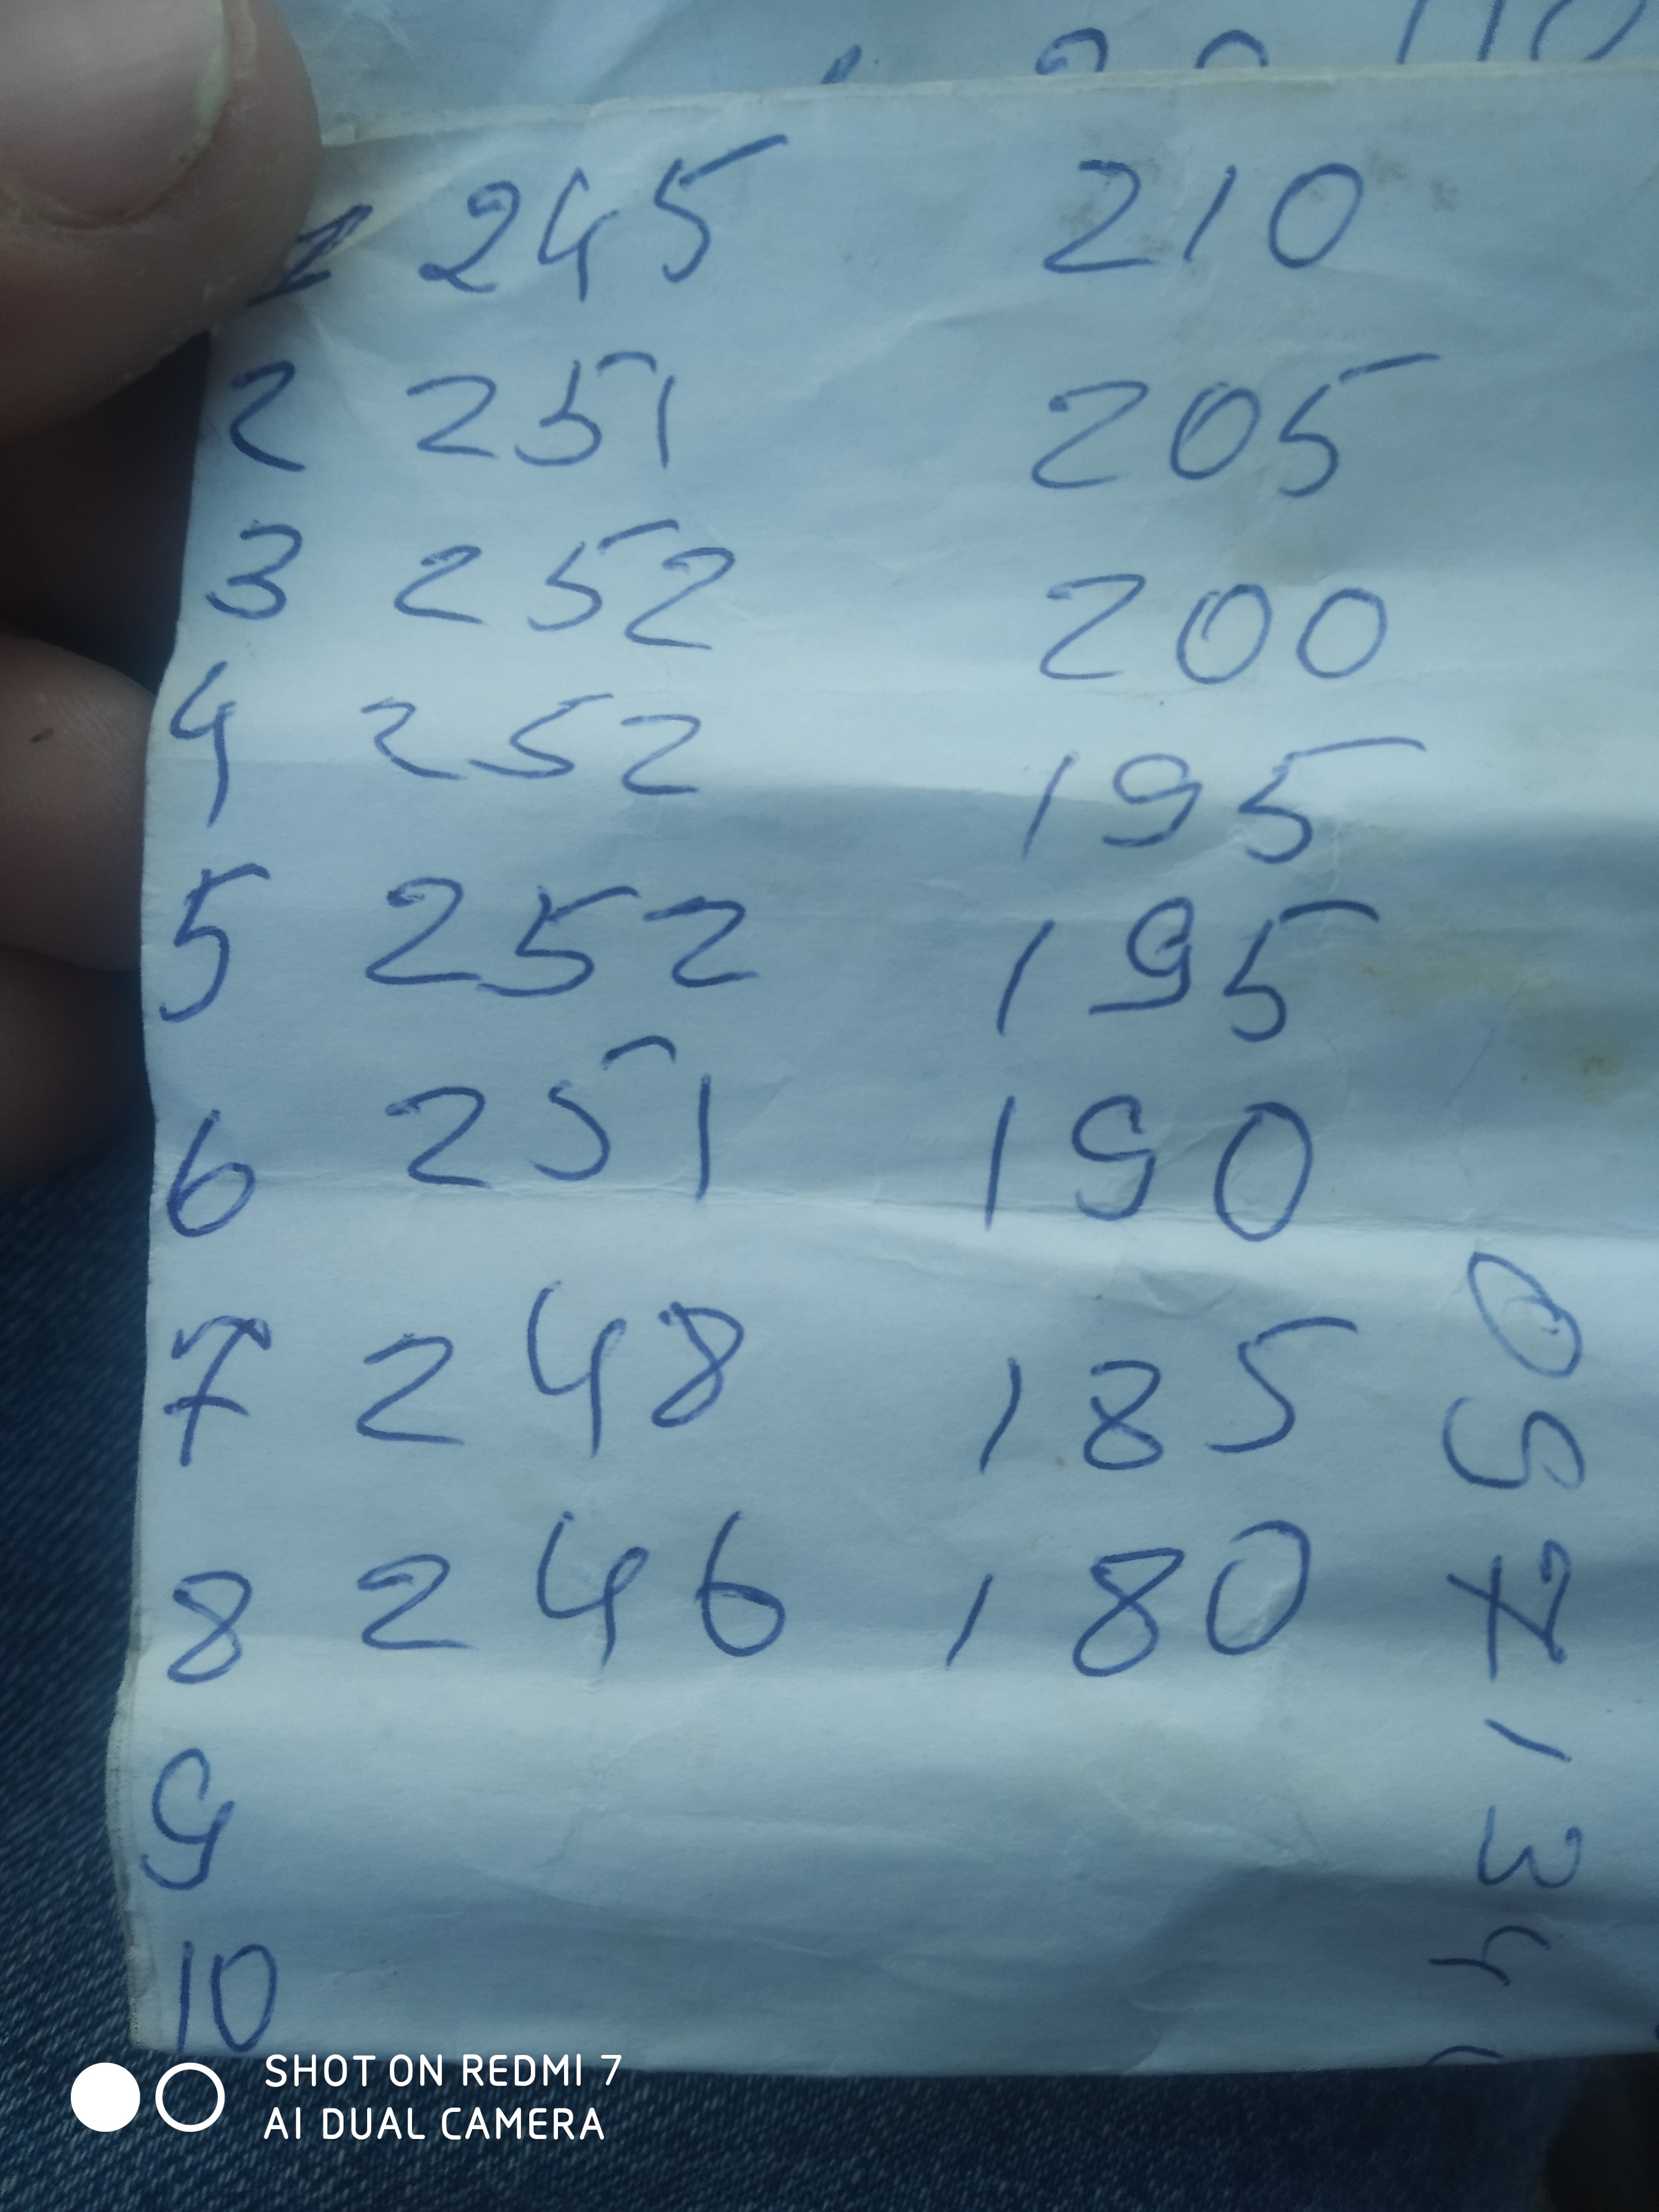 1 245 210
2 251 205
3 252 200
4 252 195
5 252 195
6 251 190
7 248 185
8 246 180
9
10
SHOT ON REDMI 7
AI DUAL CAMERA